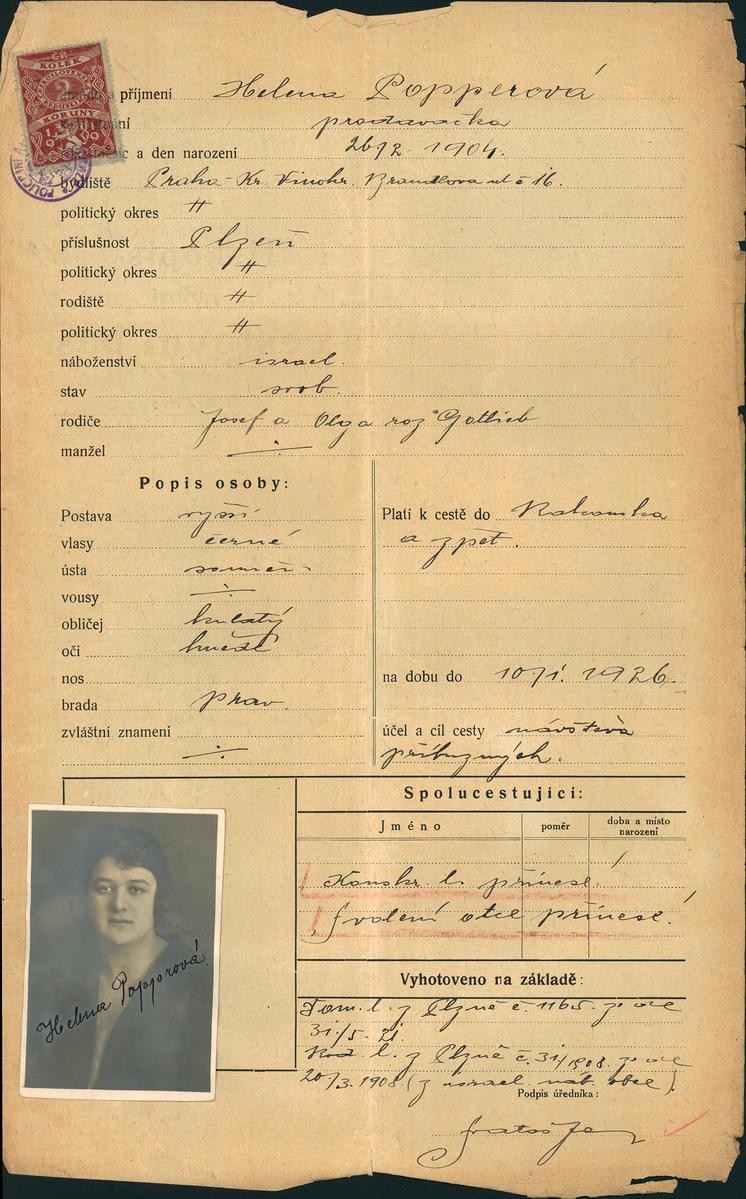 KOLEK
2
KORUNY
1919
POLICEJNÍ
příjmení Helena Popperová
prodavačka
a den narození 26/2. 1904.
bydliště Praha-Kr. Vinohr. ul č 16.
politický okres "
příslušnost Plzeň
politický okres "
rodiště "
politický okres "
náboženství israel.
stav svob.
rodiče Josef a Olga roz Gottlieb
manžel ÷
Popis osoby:
Postava vyšší
vlasy černé
ústa souměr.
vousy ÷
obličej kulatý
oči hnědé
nos
brada prav.
zvláštní znamení
÷
Platí k cestě do Rakouska
a zpět.
na dobu do 10/1. 1926.
účel a cíl cesty návštěva
příbuzných.
Spolucestující:
Jméno poměr doba a místo
narození
/
Konskr. l. přinese.
Svolení otce přinese!
Helena Popperová
Vyhotoveno na základě:
Dom. l. z Plzně č. 1165. ze dne
31/5. 21.
Rod. l. z Plzně č. 31/1908. ze dne
20/3. 1908. (z israel. náb. obce).
Podpis úředníka: